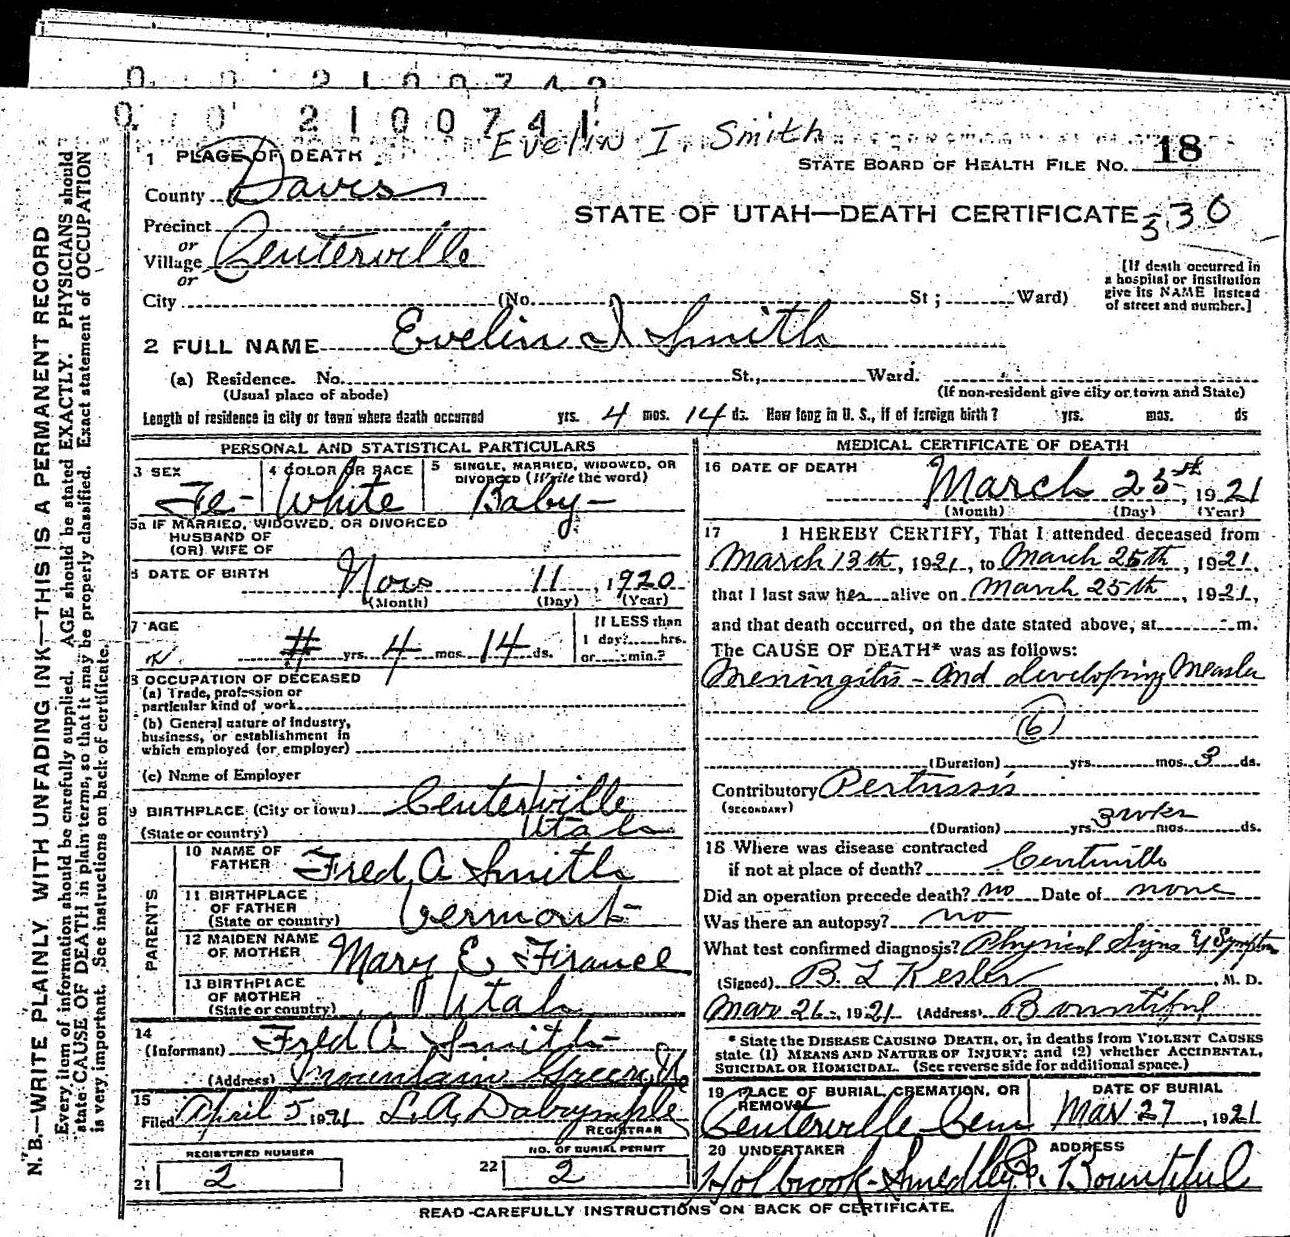 0 0 2100742
0 0 2100741
Evelin I. Smith
18
STATE BOARD OF HEALTH FILE NO.
1 PLACE OF DEATH
County Davis
STATE OF UTAH—DEATH CERTIFICATE
330
Precinct
or
Village Centerville
or
[If death occurred in
a hospital or institution
give its NAME instead
of street and number.]
City (No. St ; Ward)
2 FULL NAME Evelin I Smith
(a) Residence. No. St., Ward.
(Usual place of abode) (If non-resident give city or town and State)
Length of residence in city or town where death occurred yrs. 4 mos. 14 ds. How long in U. S., if of foreign birth? yrs. mos. ds
PERSONAL AND STATISTICAL PARTICULARS
3 SEX Fe-
4 COLOR OR RACE White
5 SINGLE, MARRIED, WIDOWED, OR
DIVORCED (Write the word)
Baby-
5a IF MARRIED, WIDOWED, OR DIVORCED
HUSBAND OF
(OR) WIFE OF
6 DATE OF BIRTH Nov 11, 1920
(Month) (Day) (Year)
7 AGE yrs. 4 mos. 14 ds.
If LESS than
1 day? hrs.
or min.?
8 OCCUPATION OF DECEASED
(a) Trade, profession or
particular kind of work
(b) General nature of industry,
business, or establishment in
which employed (or employer)
(c) Name of Employer
9 BIRTHPLACE (City or town) Centerville
(State or country) Utah
PARENTS
10 NAME OF
FATHER Fred A Smith
11 BIRTHPLACE
OF FATHER
(State or country) Vermont
12 MAIDEN NAME
OF MOTHER Mary E
13 BIRTHPLACE
OF MOTHER
(State or country) Utah
14
(Informant) Fred A Smith
(Address) Mountain Green, U
15
Filed April 5 1921 L. A. Dalrymple
REGISTRAR
REGISTERED NUMBER
21 2
NO. OF BURIAL PERMIT
22 2
MEDICAL CERTIFICATE OF DEATH
16 DATE OF DEATH
March 25th, 1921
(Month) (Day) (Year)
17 I HEREBY CERTIFY, That I attended deceased from
March 13th, 1921, to March 25th, 1921,
that I last saw her alive on March 25th, 1921,
and that death occurred, on the date stated above, at m.
The CAUSE OF DEATH* was as follows:
Meningitis - and developing Measles
(6)
(Duration) yrs. mos. 3 ds.
Contributory Pertussis
(SECONDARY)
(Duration) yrs. 3 wks mos. ds.
18 Where was disease contracted
if not at place of death? Centerville
Did an operation precede death? no Date of none
Was there an autopsy? no
What test confirmed diagnosis? Physical Signs & Symptom
(Signed) B. L Kesler, M. D.
Mar 26, 1921 (Address) Bountiful
* State the DISEASE CAUSING DEATH, or, in deaths from VIOLENT CAUSES
state (1) MEANS AND NATURE OF INJURY; and (2) whether ACCIDENTAL,
SUICIDAL OR HOMICIDAL. (See reverse side for additional space.)
19 PLACE OF BURIAL, CREMATION, OR
REMOVAL
Centerville Cem
DATE OF BURIAL
Mar 27, 1921
20 UNDERTAKER
Holbrook-Smedley Co.
ADDRESS
Bountiful
READ CAREFULLY INSTRUCTIONS ON BACK OF CERTIFICATE.
N. B.—WRITE PLAINLY WITH UNFADING INK—THIS IS A PERMANENT RECORD
Every item of information should be carefully supplied. AGE should be stated EXACTLY. PHYSICIANS should
state CAUSE OF DEATH in plain terms, so that it may be properly classified. Exact statement of OCCUPATION
is very important. See instructions on back of certificate.